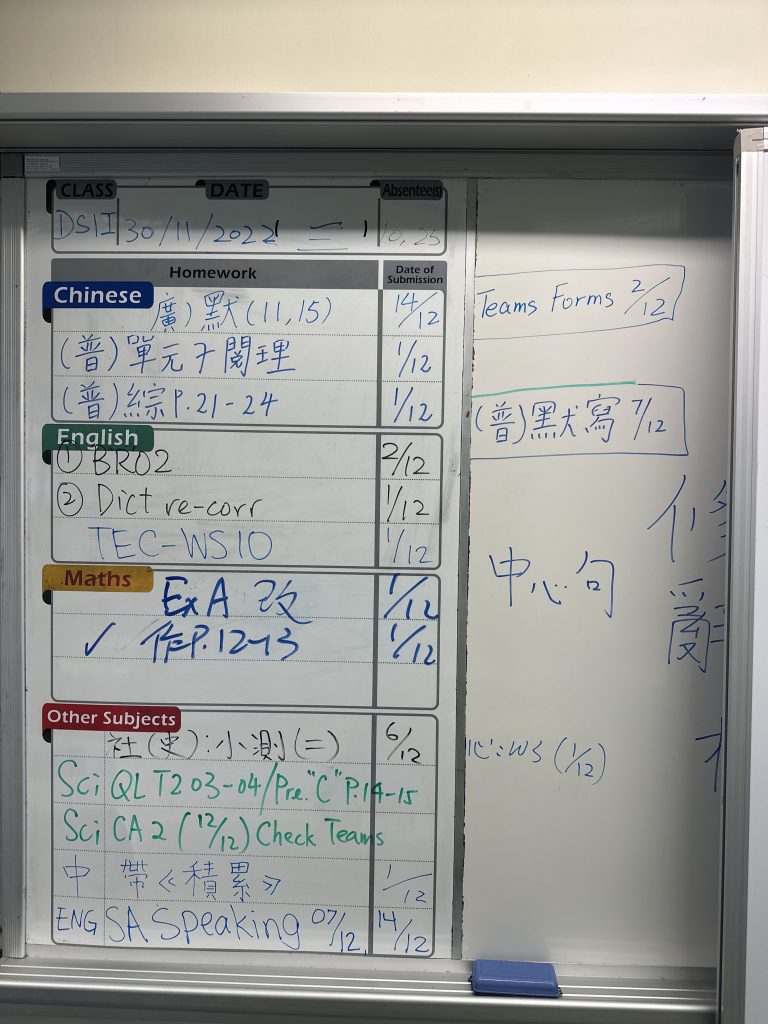 CLASS DATE Absentee(s)
DS1I 30/11/2022 三 10, 25
Homework Date of Submission
Chinese
廣) 默(11,15) 14/12
(普)單元7閱理 1/12
(普)綜P.21-24 1/12
English
① BR02 2/12
② Dict re-corr 1/12
TEC-WS10 1/12
Maths
Ex A 改 1/12
✓ 作P.12-13 1/12
Other Subjects
社(史):小測(二) 6/12
Sci QL T2 03-04/Pre."C" P.14-15
Sci CA 2 (12/12) Check Teams
中 帶《積累》 1/12
ENG SA Speaking 07/12, 14/12
Teams Forms 2/12
(普)默寫 7/12
中心句
心:WS (1/12)